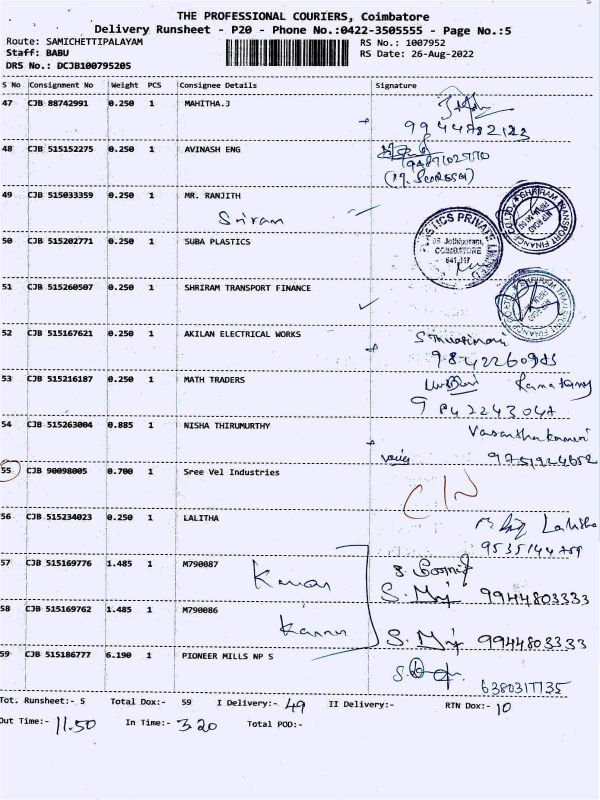 THE PROFESSIONAL COURIERS, Coimbatore
Delivery Runsheet - P20 - Phone No.:0422-3505555 - Page No.:5
Route: SAMICHETTIPALAYAM RS No.: 1007952
Staff: BABU RS Date: 26-Aug-2022
DRS No.: DCJB100795205
S No Consignment No Weight PCS Consignee Details Signature
47 CJB 88742991 0.250 1 MAHITHA.J
9944782123
48 CJB 515152275 0.250 1 AVINASH ENG
49 CJB 515033359 0.250 1 MR. RANJITH
Sriram
50 CJB 515202771 0.250 1 SUBA PLASTICS
51 CJB 515260507 0.250 1 SHRIRAM TRANSPORT FINANCE
52 CJB 515167621 0.250 1 AKILAN ELECTRICAL WORKS
53 CJB 515216187 0.250 1 MATH TRADERS
9842243047
54 CJB 515263004 0.885 1 NISHA THIRUMURTHY
55 CJB 90098005 0.700 1 Sree Vel Industries
C/N
56 CJB 515234023 0.250 1 LALITHA
Lalitha
57 CJB 515169776 1.485 1 M790087
S. 9944803333
58 CJB 515169762 1.485 1 M790086
S. 9944803333
59 CJB 515186777 6.190 1 PIONEER MILLS NP S
6380317735
Tot. Runsheet:- 5 Total Dox:- 59 I Delivery:- 49 II Delivery:- RTN Dox:- 10
Out Time:- 11.50 In Time:- 3.20 Total POD:-